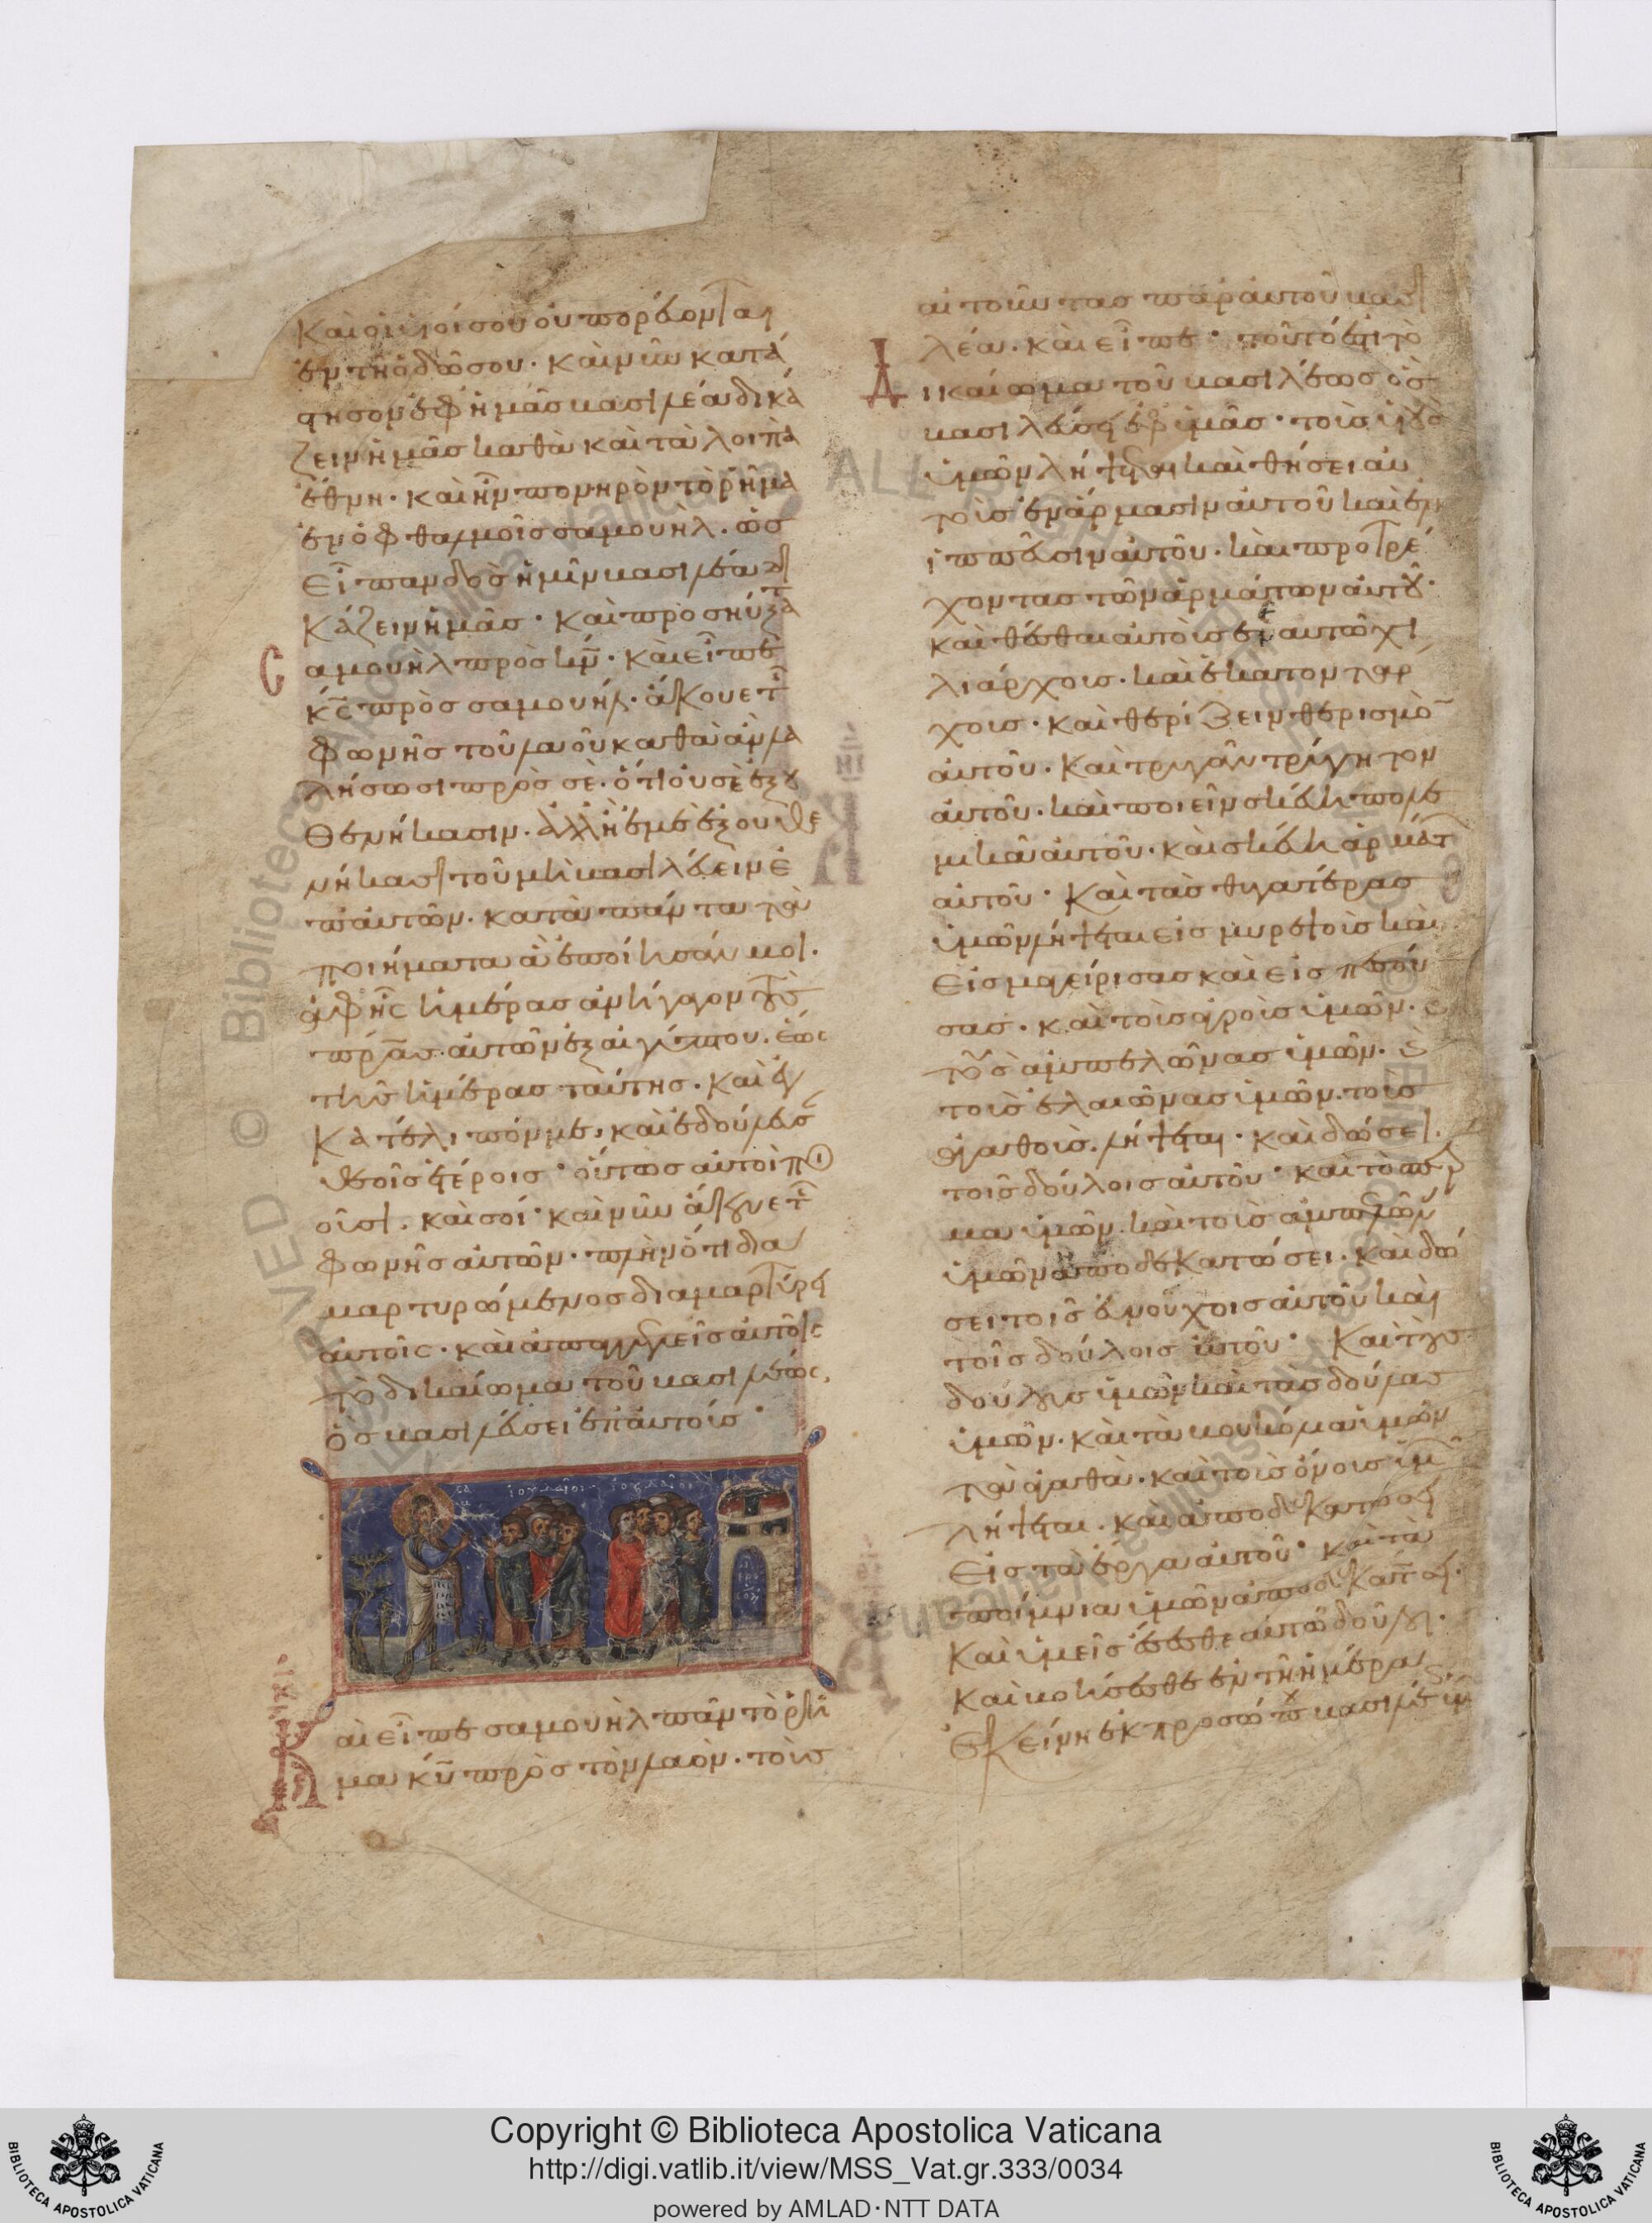 Καὶ οἱ υἱοί σου οὐ πορεύονται
ἐν τῆ ὁδῶ σου· καὶ νῦν κατά
στησον ἐφ ἡμᾶς βασιλέα δικά
ζειν ἡμᾶς καθὰ καὶ τὰ λοιπὰ
ἔθνη· καὶ ἦν πονηρὸν τὸ ρῆμα
ἐν ὀφθαλμοῖς σαμουήλ· ὡς
εἶπαν δὸς ἡμῖν βασιλέα δι
κάζειν ἡμᾶς· καὶ προσηύξατ
σ αμουὴλ πρὸς κν̅· καὶ εἶπε
κς̅ πρὸς σαμουήλ· ἄκουε τ
φωνῆς τοῦ λαοῦ καθὰ ἂν λα
λήσωσι πρὸς σὲ· ὅτι οὐ σὲ ἐξου
θενήκασιν· ἀλλ ἢ ἐμὲ ἐξουθε
νήκασι τοῦ μὴ βασιλεύειν ἐ
π αὐτῶν· κατὰ πάντα τὰ
ποιήματα ἃ ἐποίησάν μοι·
ἀφ ἧς ἡμέρας ἀνήγαγον τοὺς
πρ̅ας αὐτῶν ἐξ αἰγύπτου· ἕως
τῆς ἡμέρας ταύτης· καὶ ἐγ
κατέλιπόν με· καὶ ἐδούλευσ
θεοῖς ἑτέροις· οὕτως αὐτοὶ ποι
οῦσι· καὶ σοί· καὶ νῦν ἄκουε τ
φωνῆς αὐτῶν· πλὴν ὅτι δια
μαρτυρώμενος διαμαρτύρη
αὐτοῖς· καὶ ἀπαγγελεῖς αὐτοῖς
τὸ δικαίωμα τοῦ βασιλέως·
ὃς βασιλεύσει ἐπ αὐτοίς·
ιουδαῖοι ιουδαῖοι
Κ αὶ εἶπε σαμουὴλ πᾶν τὸ ρῆ
μα κυ̅ πρὸς τὸν λαὸν· τοὺς
αἰτοῦντας παρ αὐτοῦ βασι
λέα· καὶ εἶπε· τοῦτό ἐστι τὸ
Δ ικαίωμα τοῦ βασιλέως ὃς
βασιλεύσει ἐφ ὑμᾶς· τοὺς υἱοὺς
ὑμῶν λήψεται καὶ θήσει αὐ
τοὺς ἐν ἅρμασιν αὐτοῦ καὶ ἐν
ἱππεῦσιν αὐτοῦ· καὶ προτρέ
χοντας τῶν ἁρμάτων αὐτοῦ·
καὶ θέσθαι αὐτοὺς ἐν αὐτῶ χι
λιάρχους· καὶ ἑκατοντάρ
χους· καὶ θερίζειν θερισμὸ̅
αὐτοῦ· καὶ τρυγᾶν τρύγητον
αὐτοῦ· καὶ ποιεῖν σκεύη πολε
μικὰ αὐτοῦ· καὶ σκεύη ἁρμάτ
αὐτοῦ· Καὶ τὰς θυγατέρας
ὑμῶν λήψεται εἰς μυρεψοὺς καὶ
εἰς μαγειρίσσας καὶ εἰς πεσσού
σας· καὶ τοὺς ἀγροὺς ὑμῶν· καὶ
τοὺς ἀμπελῶνας ὑμῶν· καὶ
τοὺς ἐλαιῶνας ὑμῶν· τοὺς
ἀγαθοὺς· λήψεται· καὶ δώσει
τοῖς δούλοις αὐτοῦ· καὶ τὸ σπέρ
μα ὑμῶν· καὶ τοὺς ἀμπελῶν
ὑμῶν ἀποδεκατώσει· καὶ δώ
σει τοῖς εὐνούχοις αὐτοῦ καὶ
τοῖς δούλοις αὐτοῦ· Καὶ τοὺς
δούλους ὑμῶν καὶ τὰς δούλας
ὑμῶν· καὶ τὰ βουκόλια ὑμῶν
τὰ ἀγαθὰ· καὶ τοὺς ὄνους ὑμ
λήψεται· καὶ ἀποδεκατώσει
εἰς τὰ ἔργα αὐτοῦ· καὶ τὰ
ποίμνια ὑμῶν ἀποδεκατώσει·
καὶ ὑμεῖς ἔσεσθε αὐτῶ δοῦλοι·
καὶ βοήσεσθε ἐν τῆ ἡμέρα
ἐκείνη ἐκ προσώπου βασιλέως ὑμ
Copyright © Biblioteca Apostolica Vaticana
http://digi.vatlib.it/view/MSS_Vat.gr.333/0034
powered by AMLAD･NTT DATA
BIBLIOTECA APOSTOLICA VATICANA
BIBLIOTECA APOSTOLICA VATICANA